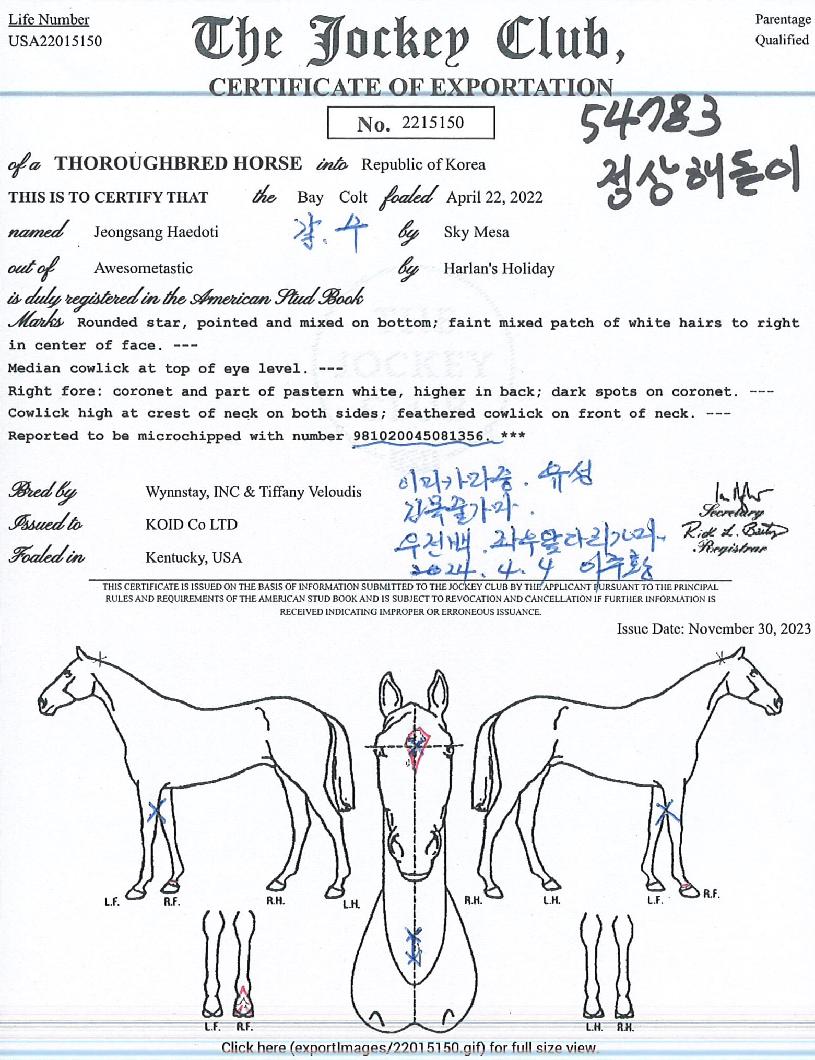 Life Number
USA22015150
The Jockey Club,
Parentage
Qualified
CERTIFICATE OF EXPORTATION
No. 2215150
54783
정상해돋이
of a THOROUGHBRED HORSE into Republic of Korea
THIS IS TO CERTIFY THAT the Bay Colt foaled April 22, 2022
named Jeongsang Haedoti 갈. 수 by Sky Mesa
out of Awesometastic by Harlan's Holiday
is duly registered in the American Stud Book
Marks Rounded star, pointed and mixed on bottom; faint mixed patch of white hairs to right
in center of face. ---
Median cowlick at top of eye level. ---
Right fore: coronet and part of pastern white, higher in back; dark spots on coronet. ---
Cowlick high at crest of neck on both sides; feathered cowlick on front of neck. ---
Reported to be microchipped with number 981020045081356. ***
THE JOCKEY
Bred by Wynnstay, INC & Tiffany Veloudis
Issued to KOID Co LTD
Foaled in Kentucky, USA
이마가라중. 유성
목줄가마.
우전백. 좌우앞다리가마
2024. 4. 4
Secretary
Registrar
THIS CERTIFICATE IS ISSUED ON THE BASIS OF INFORMATION SUBMITTED TO THE JOCKEY CLUB BY THE APPLICANT PURSUANT TO THE PRINCIPAL
RULES AND REQUIREMENTS OF THE AMERICAN STUD BOOK AND IS SUBJECT TO REVOCATION AND CANCELLATION IF FURTHER INFORMATION IS
RECEIVED INDICATING IMPROPER OR ERRONEOUS ISSUANCE.
Issue Date: November 30, 2023
L.F. R.F. R.H. L.H. R.H. L.H. L.F. R.F.
L.F. R.F. L.H. R.H.
Click here (exportImages/22015150.gif) for full size view.